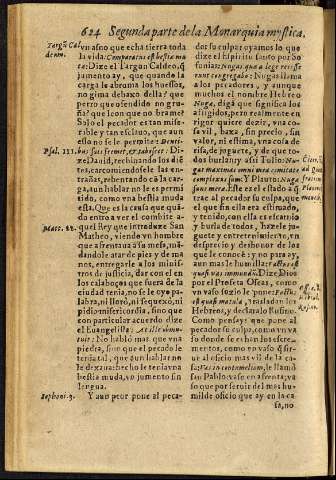 624 Segunda parte de la Monarquia mystica.
Targũ Cal
deum.
un asno que echa tierra toda
la vida: Comparatus est bestiæ mu
tæ: Dize el Targun Caldeo, q̃
jumento ay, que quando la
carga le abruma los huessos,
no gima debaxo della? que
perro que ofendido no gru
ña? que leon que no brame?
Solo el pecador es tan mise-
rable y tan esclauo, que aun
esso no se le permite: Denti-
Psal. 111.
bus suis fremet, & tabescet: Di-
ze Dauid, rechinando los diẽ
tes, carcomiendosele las en-
trañas, rebentando cõ la car
ga, aun hablar no le es permi
tido, como vna bestia muda
esta. Que es la causa que quã-
do entro a ver el combite a-
Matt. 22.
quel Rey que introduze San
Matheo, viendo vn hombre
que afrentaua a su mesa, mã-
dandole atar de pies y de ma
nos, entregarle a los minis-
tros de justicia, dar con el en
los calabozos que fuera de la
ciudad tenia, no se le oye pa-
labra, ni lloró, ni se quexò, ni
pidio misericordia, sino que
con particular acuerdo dize
el Euangelista: At ille obmu-
tuit: No habló mas que vna
piedra, sino que el pecado le
tenia tal, que aun hablar no
le dexaua hecho le tenia vna
bestia muda, vn jumento sin
lengua.
Sophoni. 3.
Y aun peor pone al peca-
dor su culpa: oyamos lo que
dize el Espiritu santo por So
fonias: Nugas qui a lege recesse-
runt congregabo: Nugas llama
a los pecadores, y aunque
muchos el nombre Hebreo
Nuge, digã que significa los
afligidos, pero realmente en
rigor quiere dezir, vna co-
sa vil, baxa, sin precio, sin
valor, ni estima, vna cosa de
risa, de juguete, y de que to-
dos burlan: y assi Tulio: Nu
gas maximas omni mea comitate
complexus sum. Y Plauto: Nugas
sunt mera. Este es el estado a q̃
trae al pecador su culpa, que
el que sin ella era estimado,
y tenido, con ella es escarnio
y burla de todos, hazele ju-
guete y entretenimiento, vn
desprecio y deshonor de los
que le conocẽ: y no para ay,
aun mas le humilla:
Dize Dios
por el Profeta Oseas, como
vn vaso sozio le pone:
trasladan los
Hebreos, y declaralo Rufino.
Como pensays que pone al
pecador su culpa? como vn
vaso donde se echan los escre-
mentos, como en vaso q̃ sir-
ue al oficio mas vil de la ca-
sa: Vas in contumeliam, le llamò
san Pablo: vaso en afrenta, va
so que por seruir del mas hu-
milde oficio que ay en la ca-
sa, no